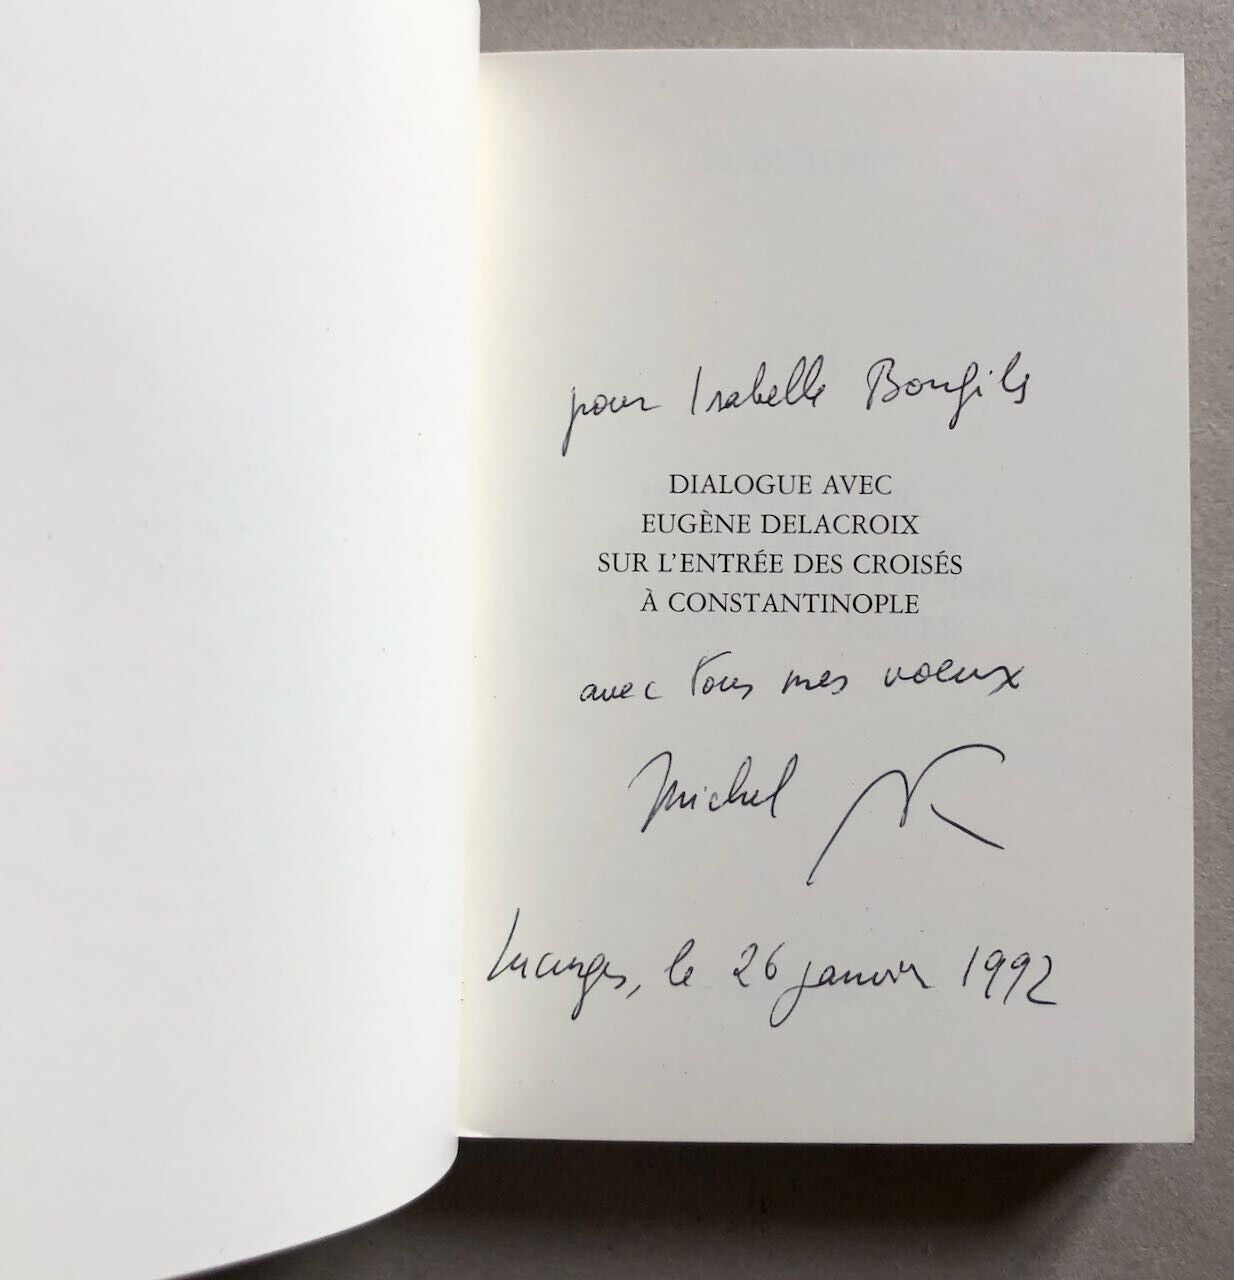 pour Isabelle
DIALOGUE AVEC
EUGÈNE DELACROIX
SUR L'ENTRÉE DES CROISÉS
À CONSTANTINOPLE
avec tous mes voeux
Michel
Lucinges, le 26 janvier 1992